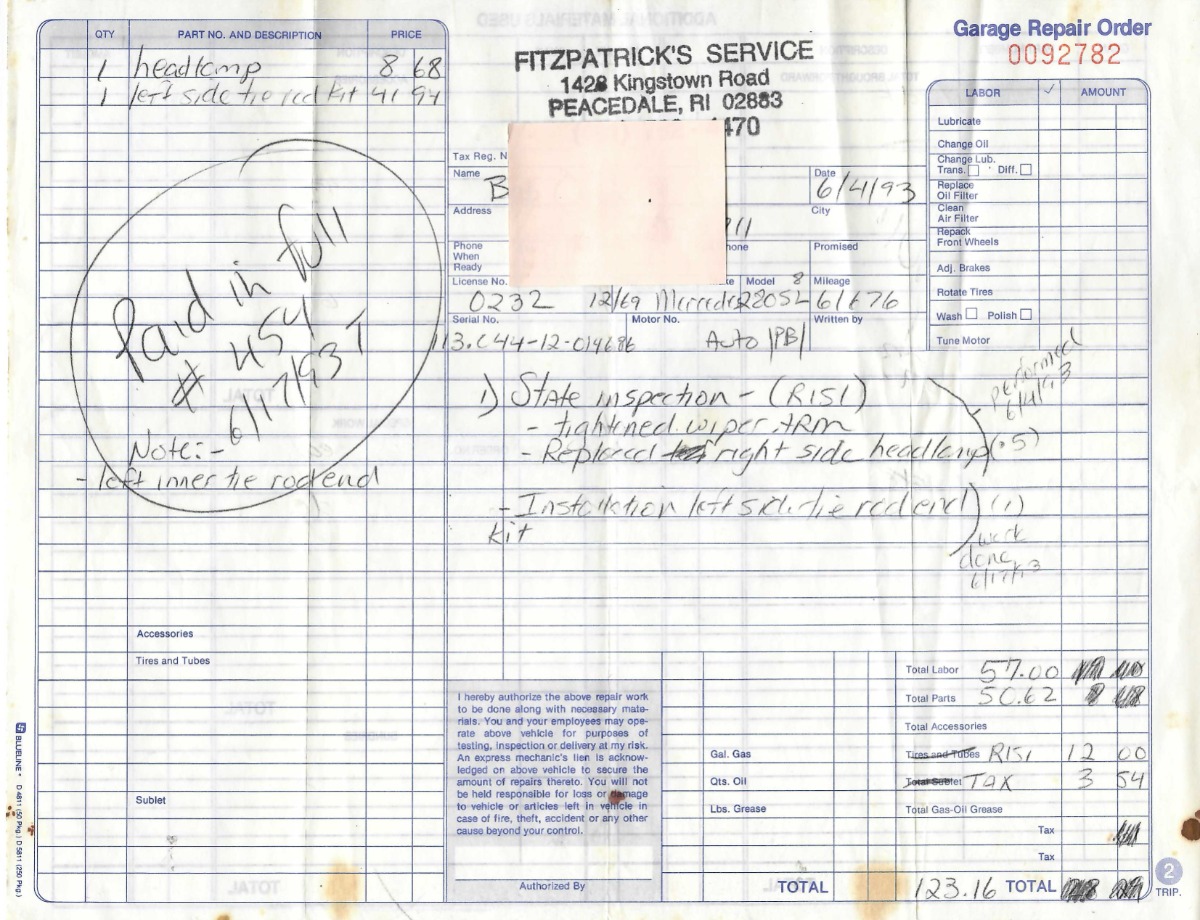 QTY PART NO. AND DESCRIPTION PRICE
1 headlamp 8 68
1 left side tie rod kit 41 94
Paid in full
# 454
6/17/93 T
Note:-
- left inner tie rod end
Accessories
Tires and Tubes
Sublet
FITZPATRICK'S SERVICE
1428 Kingstown Road
PEACEDALE, RI 02883
470
Garage Repair Order
0092782
Tax Reg. N
Name B
Date 6/4/93
Address
City
Phone When Ready
hone
Promised
License No. 0232
12/69 Mercedes
Model 280SL
Mileage 61676
Serial No. 113.044-12-014686
Motor No.
Auto |PB|
Written by
LABOR ✓ AMOUNT
Lubricate
Change Oil
Change Lub.
Trans. Diff.
Replace
Oil Filter
Clean
Air Filter
Repack
Front Wheels
Adj. Brakes
Rotate Tires
Wash Polish
Tune Motor
1) State inspection - (RISI)
- tightened wiper ARM
- Replaced right side headlamp (.5)
performed
6/4/93
- Installation left side tie rod end (1)
kit
work
done
6/17/93
I hereby authorize the above repair work
to be done along with necessary mate-
rials. You and your employees may ope-
rate above vehicle for purposes of
testing, inspection or delivery at my risk.
An express mechanic's lien is acknow-
ledged on above vehicle to secure the
amount of repairs thereto. You will not
be held responsible for loss or damage
to vehicle or articles left in vehicle in
case of fire, theft, accident or any other
cause beyond your control.
Authorized By
Gal. Gas
Qts. Oil
Lbs. Grease
TOTAL
Total Labor 57.00
Total Parts 50.62
Total Accessories
Tires and Tubes RISI 12 00
Total Sublet TAX 3 54
Total Gas-Oil Grease
Tax
Tax
123.16 TOTAL
2
TRIP.
BLUELINE D 4811 (50 Pkg.) D 5811 (250 Pkg.)